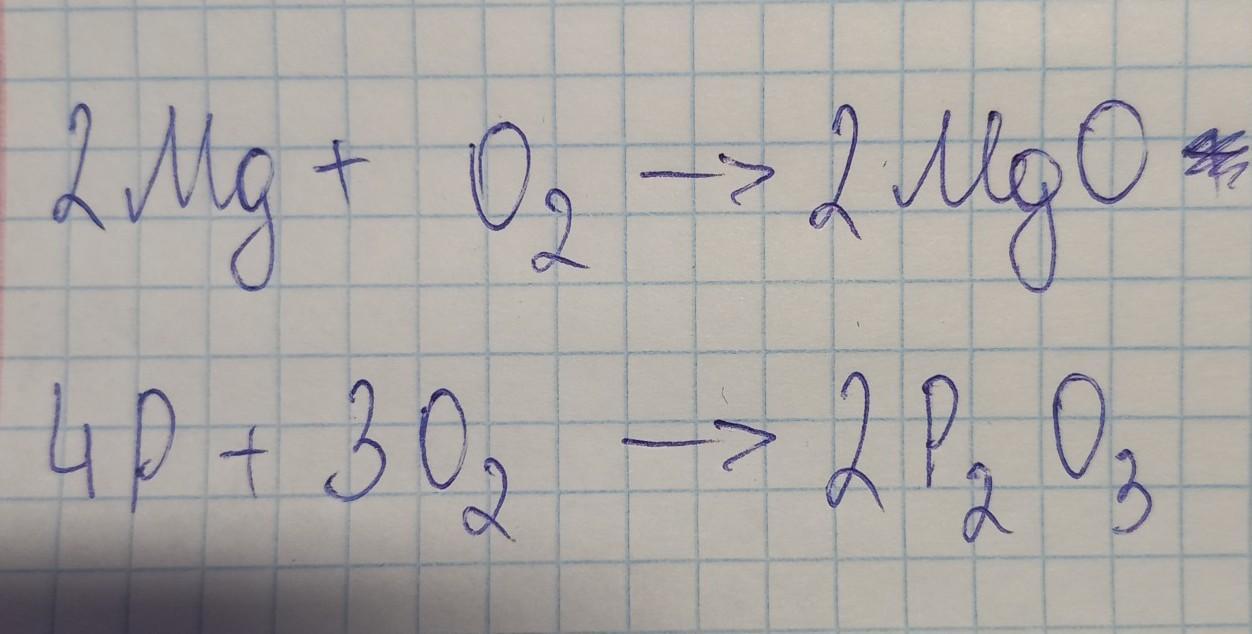 2Mg + O₂ → 2MgO
4P + 3O₂ → 2P₂O₃